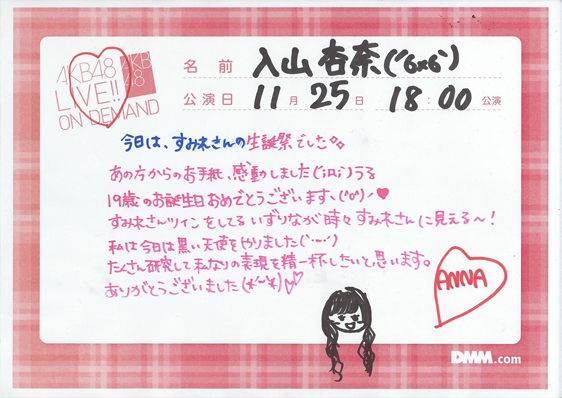 AKB48
LIVE!!
ON DEMAND
AKB
48
名前 入山杏奈(*´6x6`)
公演日 11月25日 18:00公演
今日は、すみれさんの生誕祭でした
あの方からのお手紙、感動しました(;Д;)うる
19歳のお誕生日おめでとうございますヽ(*゚o゚)ノ♥
すみれさんツインをしてるいずりなが時々すみれさんに見える〜!
私は今日は黒い天使をやりました(´・_・`)
たくさん研究して私なりの表現を精一杯したいと思います。
ありがとうございました
ANNA
DMM.com